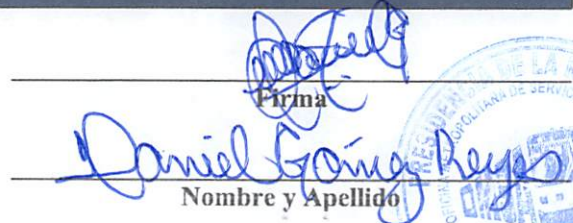 Firma
Daniel Gómez Reyes
Nombre y Apellido
PRESIDENCIA DE LA R
OPOLITANA DE SERVIC